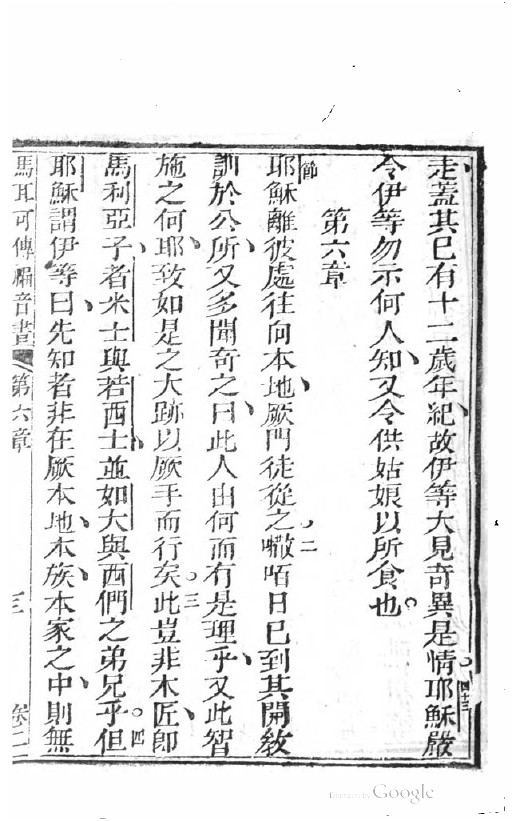 走、蓋其已有十二歲年紀、故伊等大見奇異是情。四十三耶穌嚴
令伊等勿示何人知、又令供姑娘以所食也。
第六章
一節耶穌離彼處、往向本地、厥門徒從之。二嘶咟日已到、其開教
訓於公所、又多聞奇之、曰、此人由何而有是理乎、又此智
施之何耶、致如是之大跡以厥手而行矣。三此豈非木匠、即
馬利亞子、者米士與若西士、並如大與西們之弟兄乎。四但
耶穌謂伊等曰、先知者非在厥本地、本族、本家之中、則無
馬耳可傳福音書 第六章 三 卷二
Digitized by Google